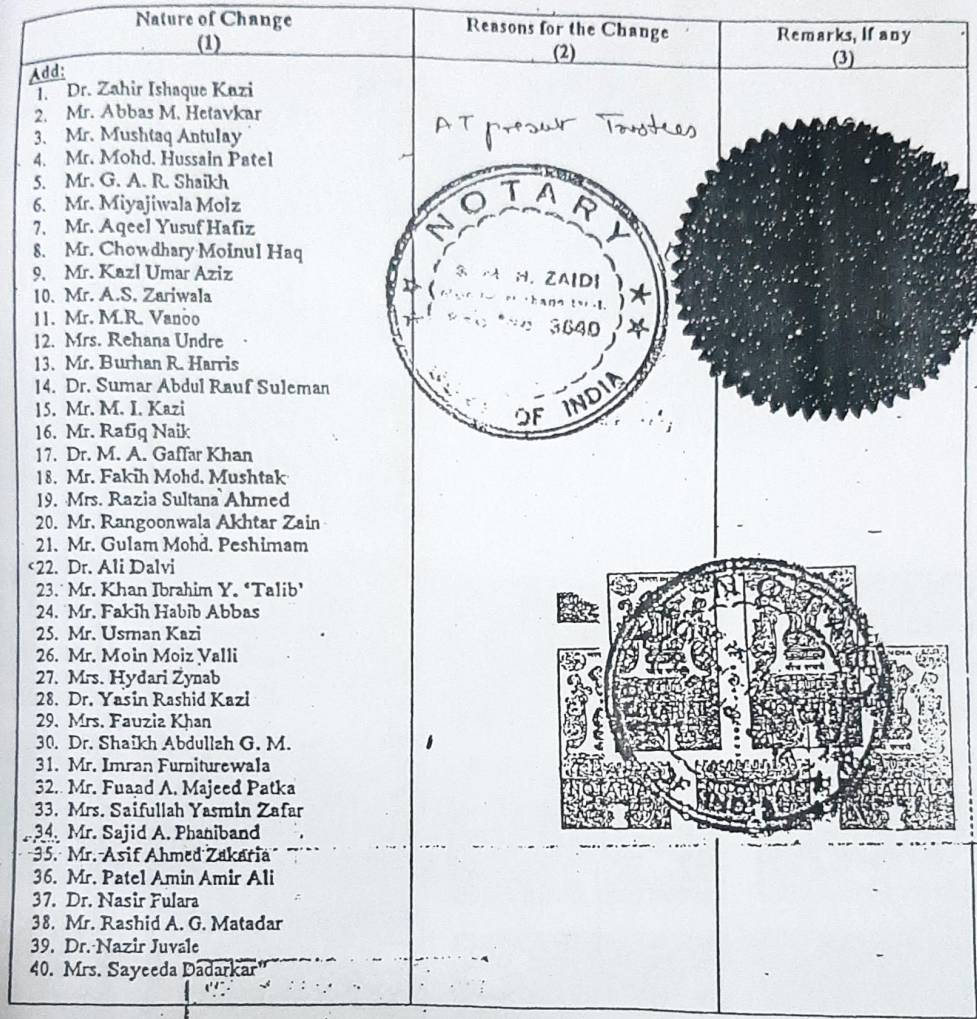 Nature of Change
(1)
Reasons for the Change
(2)
Remarks, if any
(3)
Add:
1. Dr. Zahir Ishaque Kazi
2. Mr. Abbas M. Hetavkar
3. Mr. Mushtaq Antulay
4. Mr. Mohd. Hussain Patel
5. Mr. G. A. R. Shaikh
6. Mr. Miyajiwala Moiz
7. Mr. Aqeel Yusuf Hafiz
8. Mr. Chowdhary Moinul Haq
9. Mr. Kazi Umar Aziz
10. Mr. A.S. Zariwala
11. Mr. M.R. Vanoo
12. Mrs. Rehana Undre
13. Mr. Burhan R. Harris
14. Dr. Sumar Abdul Rauf Suleman
15. Mr. M. I. Kazi
16. Mr. Rafiq Naik
17. Dr. M. A. Gaffar Khan
18. Mr. Fakih Mohd. Mushtak
19. Mrs. Razia Sultana Ahmed
20. Mr. Rangoonwala Akhtar Zain
21. Mr. Gulam Mohd. Peshimam
22. Dr. Ali Dalvi
23. Mr. Khan Ibrahim Y. ‘Talib’
24. Mr. Fakih Habib Abbas
25. Mr. Usman Kazi
26. Mr. Moin Moiz Valli
27. Mrs. Hydari Zynab
28. Dr. Yasin Rashid Kazi
29. Mrs. Fauzia Khan
30. Dr. Shaikh Abdullah G. M.
31. Mr. Imran Furniturewala
32. Mr. Fuaad A. Majeed Patka
33. Mrs. Saifullah Yasmin Zafar
34. Mr. Sajid A. Phaniband
35. Mr. Asif Ahmed Zakaria
36. Mr. Patel Amin Amir Ali
37. Dr. Nasir Fulara
38. Mr. Rashid A. G. Matadar
39. Dr. Nazir Juvale
40. Mrs. Sayeeda Dadarkar"
AT present Trustees
NOTARY
H. ZAIDI
3640
OF INDIA
OF INDIA
NOTARIAL
NOTARIAL
NOTARIAL